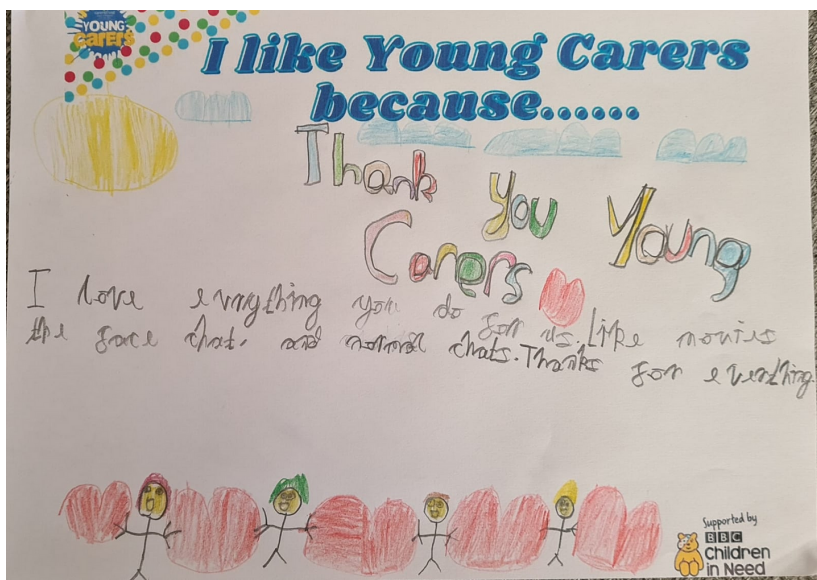 YOUNG
CARERS
I like Young Carers
because......
Thank You Young
Carers
I love evrything you do for us. Like movies
the face chat. and normal chats. Thanks for everthing.
Supported by
BBC
Children
in Need